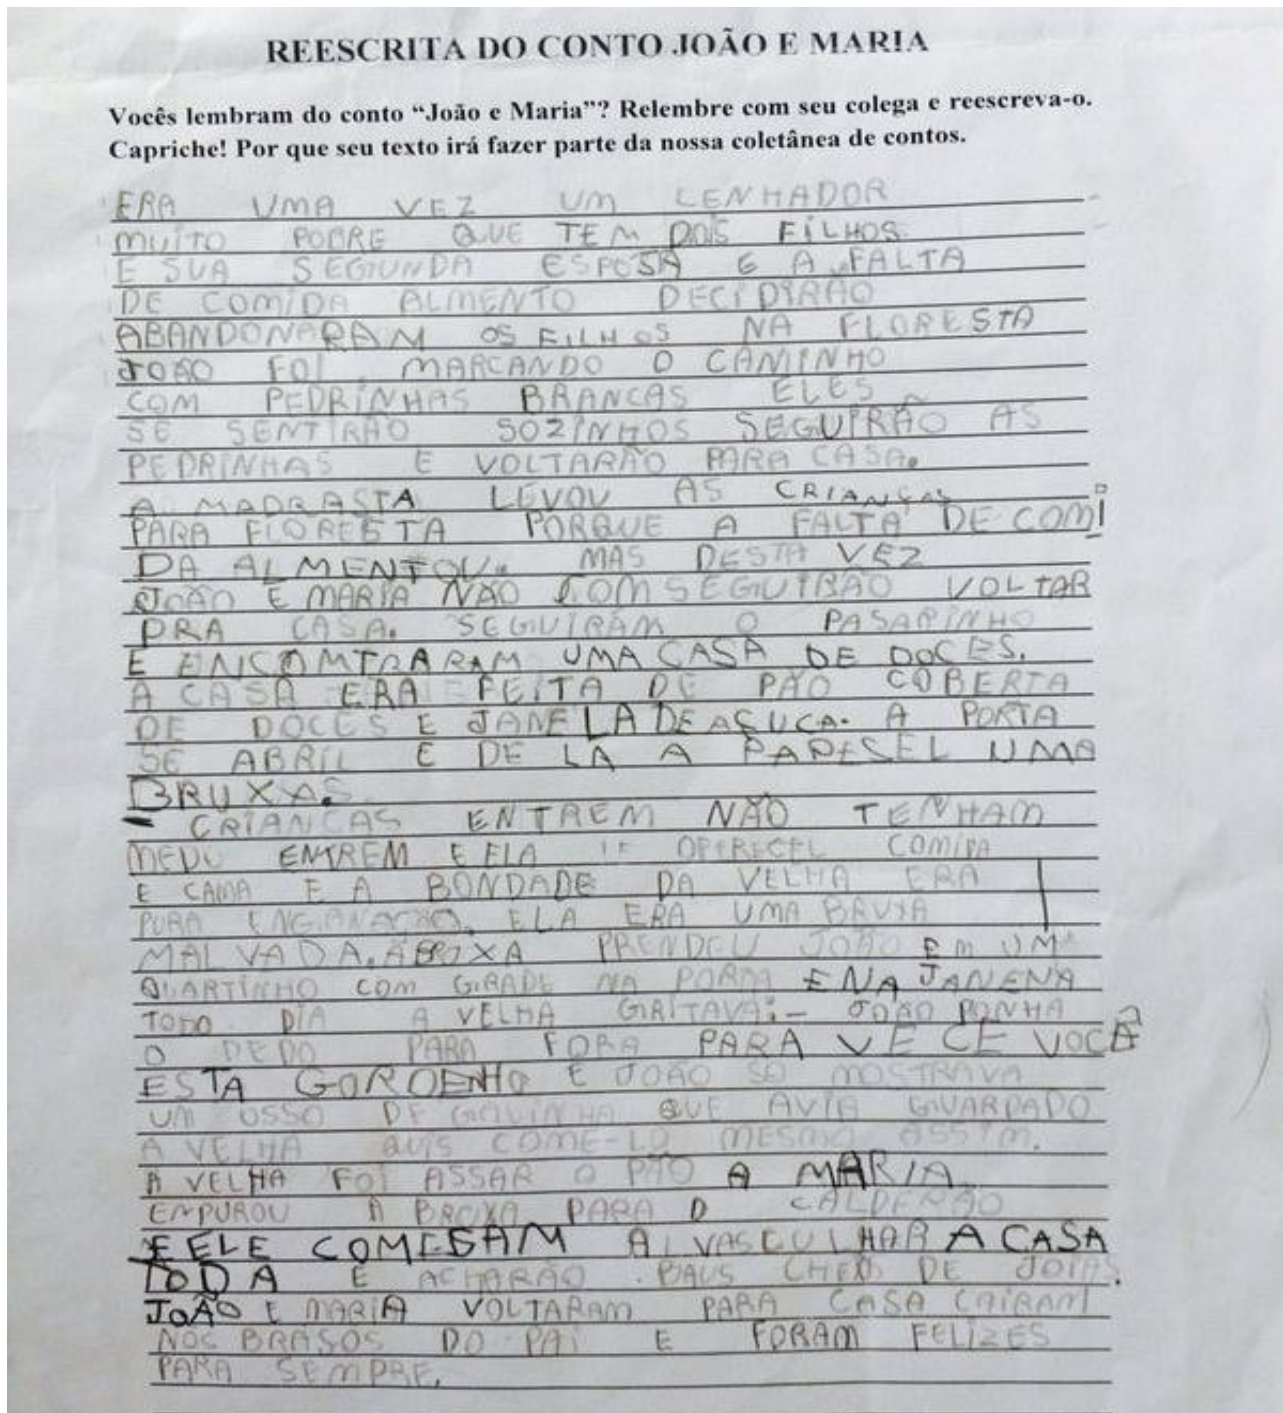 REESCRITA DO CONTO JOÃO E MARIA
Vocês lembram do conto “João e Maria”? Relembre com seu colega e reescreva-o.
Capriche! Por que seu texto irá fazer parte da nossa coletânea de contos.
ERA UMA VEZ UM LENHADOR
MUITO POBRE QUE TEM DOIS FILHOS
E SUA SEGUNDA ESPOSA E A FALTA
DE COMIDA ALMENTO DECIDIRÃO
ABANDONARAM OS FILHOS NA FLORESTA
JOÃO FOI MARCANDO O CAMINHO
COM PEDRINHAS BRANCAS ELES
SE SENTIRÃO SOZINHOS SEGUIRÃO AS
PEDRINHAS E VOLTARÃO PARA CASA.
A MADRASTA LEVOU AS CRIANÇAS
PARA FLORESTA PORQUE A FALTA DE COMI
DA ALMENTOU. MAS DESTA VEZ
JOÃO E MARIA NÃO COMSEGUIRÃO VOLTAR
PRA CASA. SEGUIRAM O PASARINHO
E ENCOMTRARAM UMA CASA DE DOCES.
A CASA ERA FEITA DE PÃO COBERTA
DE DOCES E JANELA DE AÇUCA. A PORTA
SE ABRIL E DE LA A PARESEL UMA
BRUXA.
- CRIANCAS ENTREM NÃO TENHAM
MEDO ENTREM E ELA OFERECEL COMIDA
E CAMA E A BONDADE DA VELHA ERA
PURA ENGANAÇÃO. ELA ERA UMA BRUXA
MALVADA. PRENDEU JOÃO EM UM
QUARTINHO COM GRADE NA PORTA E NA JANENA
TODO DIA A VELHA GRITAVA:- JOÃO PONHA
O DEDO PARA FORA PARA VE CE VOCÊ
ESTA GORDENHO E JOÃO SO MOSTRAVA
UM OSSO DE GALINHA QUE AVIA GUARDADO
A VELHA QUIS COME-LO MESMO ASSIM.
A VELHA FOI ASSAR O PÃO A MARIA
EMPUROU A BRUXA PARA O CALDERÃO
E ELE COMESAM A VASCULHAR A CASA
TODA E ACHARÃO BAUS CHEIO DE JOIAS.
JOÃO E MARIA VOLTARAM PARA CASA CAIRAM
NOS BRASOS DO PAI E FORAM FELIZES
PARA SEMPRE.